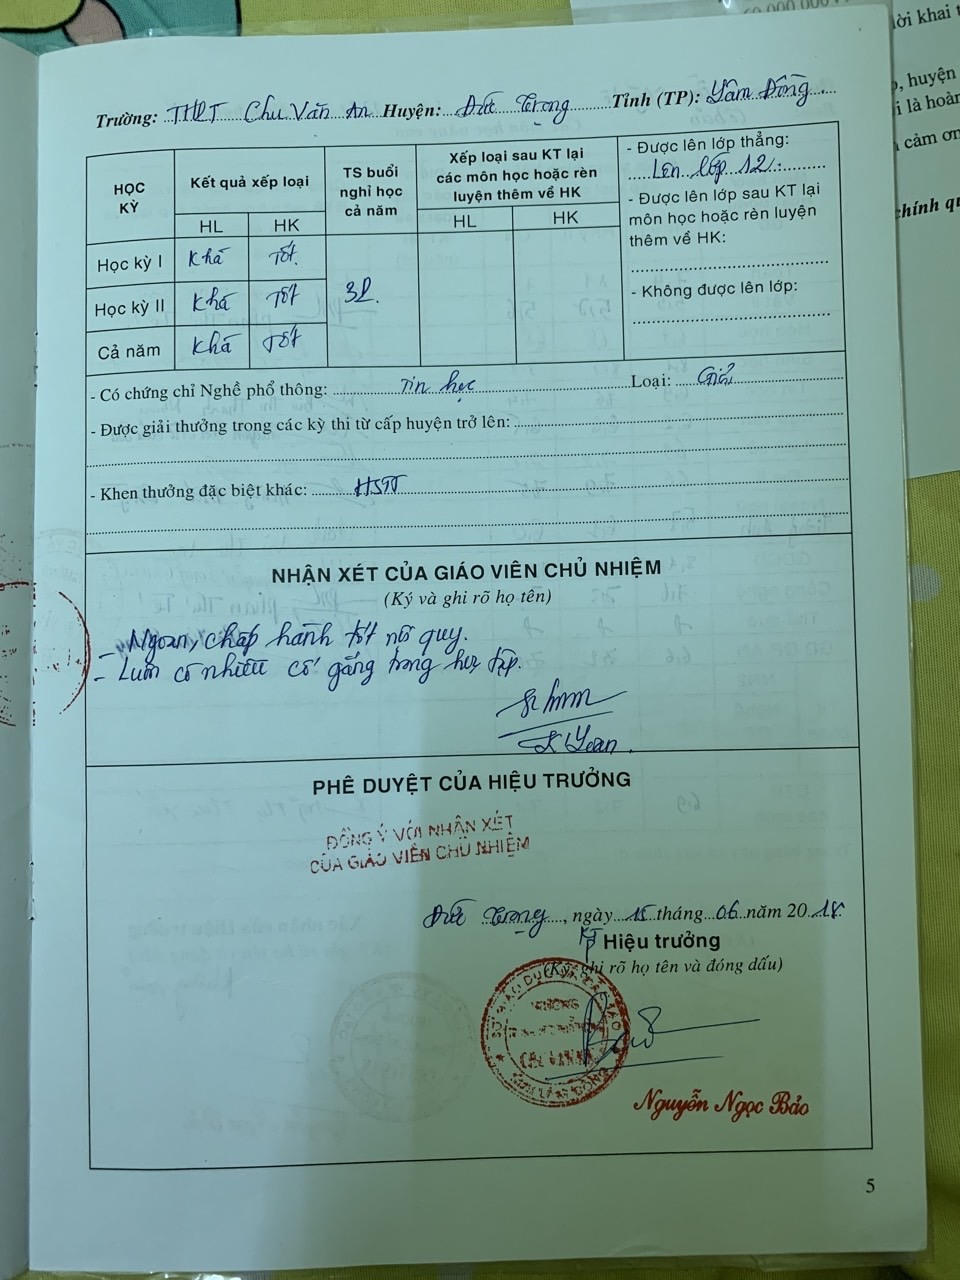 60.000.000
ời khai t
, huyện
i là hoàn
cảm ơn
chính qu
Trường: THPT Chu Văn An Huyện: Đức Trọng Tỉnh (TP): Lâm Đồng
HỌC KỲ
Kết quả xếp loại
TS buổi nghỉ học cả năm
Xếp loại sau KT lại các môn học hoặc rèn luyện thêm về HK
HL HK HL HK
Học kỳ I Khá Tốt
Học kỳ II Khá Tốt
Cả năm Khá Tốt
- Được lên lớp thẳng:
Lên lớp 12.
- Được lên lớp sau KT lại
môn học hoặc rèn luyện
thêm về HK:
- Không được lên lớp:
- Có chứng chỉ Nghề phổ thông: Tin học Loại: Giỏi
- Được giải thưởng trong các kỳ thi từ cấp huyện trở lên:
- Khen thưởng đặc biệt khác: HSTT
NHẬN XÉT CỦA GIÁO VIÊN CHỦ NHIỆM
(Ký và ghi rõ họ tên)
- Ngoan, chấp hành tốt nội quy.
- Luôn có nhiều cố gắng trong học tập.
PHÊ DUYỆT CỦA HIỆU TRƯỞNG
ĐỒNG Ý VỚI NHẬN XÉT
CỦA GIÁO VIÊN CHỦ NHIỆM
Đức Trọng, ngày 15 tháng 06 năm 2018
KT
P Hiệu trưởng
(Ký, ghi rõ họ tên và đóng dấu)
Nguyễn Ngọc Bảo
5